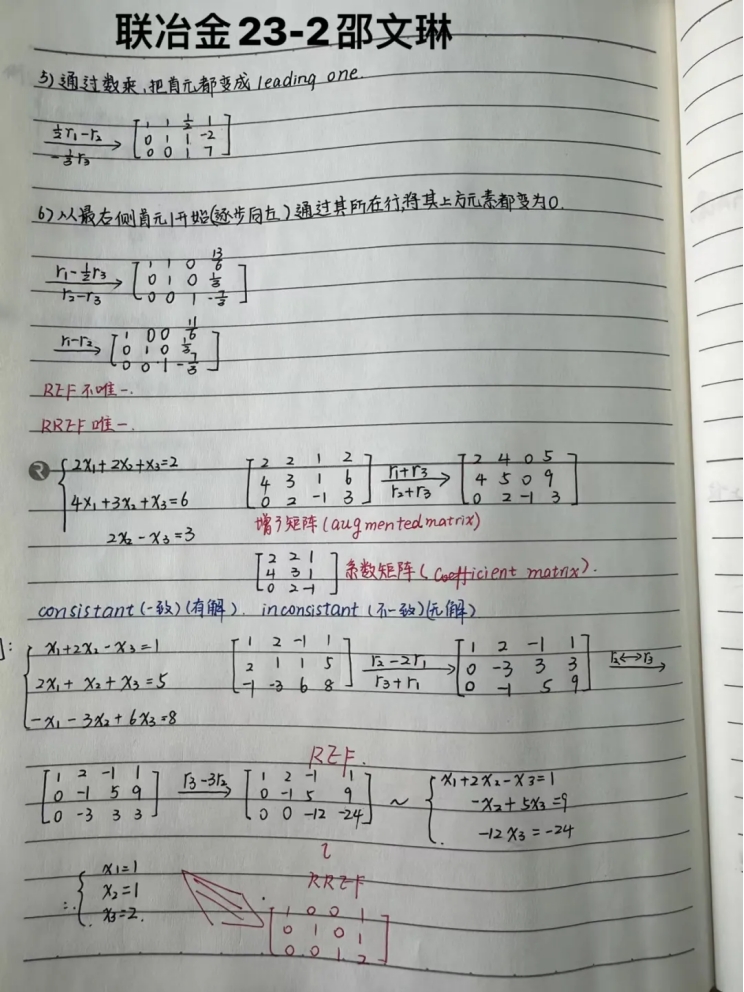 联冶金23-2邵文琳
5) 通过数乘,把首元都变成 leading one.
½r₁-r₂
-⅓r₃
[1 1 ½ 1
0 1 1 -2
0 0 1 7]
6) 从最右侧首元1开始(逐步向左)通过其所在行,将其上方元素都变为0.
r₁-½r₃
r₂-r₃
[1 1 0 13/6
0 1 0 ⅓
0 0 1 -7/3]
r₁-r₂
[1 0 0 11/6
0 1 0 ⅓
0 0 1 -7/3]
REF 不唯一.
RREF 唯一.
② { 2x₁+2x₂+x₃=2
4x₁+3x₂+x₃=6
2x₂-x₃=3
[2 2 1 2
4 3 1 6
0 2 -1 3]
r₁+r₃
r₂+r₃
[2 4 0 5
4 5 0 9
0 2 -1 3]
增广矩阵(augmented matrix)
[2 2 1
4 3 1
0 2 -1]
系数矩阵(Coefficient matrix).
consistant (一致)(有解). inconsistant (不一致)(无解)
]: { x₁+2x₂-x₃=1
2x₁+x₂+x₃=5
-x₁-3x₂+6x₃=8
[1 2 -1 1
2 1 1 5
-1 -3 6 8]
r₂-2r₁
r₃+r₁
[1 2 -1 1
0 -3 3 3
0 -1 5 9]
r₂↔r₃
REF.
[1 2 -1 1
0 -1 5 9
0 -3 3 3]
r₃-3r₂
[1 2 -1 1
0 -1 5 9
0 0 -12 -24]
~ { x₁+2x₂-x₃=1
-x₂+5x₃=9
-12x₃=-24
∴ { x₁=1
x₂=1
x₃=2.
RREF
[1 0 0 1
0 1 0 1
0 0 1 2]